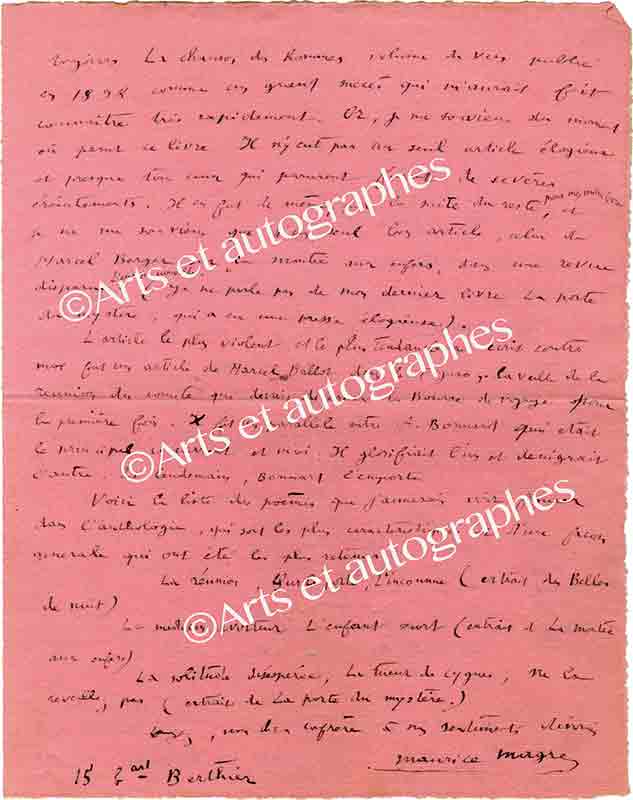 toujours La chanson des hommes volume de vers publié
en 1898 comme un grand succès qui m'aurait fait
connaître très rapidement. Or, je me souviens du moment
où parut ce livre. Il n'y eut pas un seul article élogieux
et presque tous ceux qui parurent de sévères
éreintements. Il en fut de même la suite du reste, pour mes autres livres et
je ne me souviens que seul bon article, celui de
Marcel Berger la montée aux enfers, dans une revue
disparue je ne parle pas de mon dernier livre La porte
du mystère, qui a eu une presse élogieuse).
L'article le plus violent et le plus écrit contre
moi fut un article de Marcel Ballot, dans le Figaro, la veille de la
réunion du comité qui devait la Bourse de voyage pour
la première fois. parallèle entre A. Bonnard qui était
le principal et moi. Il glorifiait l'un et dénigrait
l'autre. Le lendemain, Bonnard l'emporta.
Voici la liste des poèmes que j'aimerais voir
dans l'anthologie, qui sont les plus d'une façon
générale qui ont été les plus
La réunion, L'inconnue (extrait des Belles
de nuit)
Le L'enfant mort (extrait d La montée
aux enfers)
La solitude désespérée, Le tueur de cygnes, Ne la
réveillez pas (extrait de La porte du mystère.)
mon cher confrère à mes sentiments
Maurice Magre
15 Bart Berthier
©Arts et autographes
©Arts et autographes
©Arts et autographes